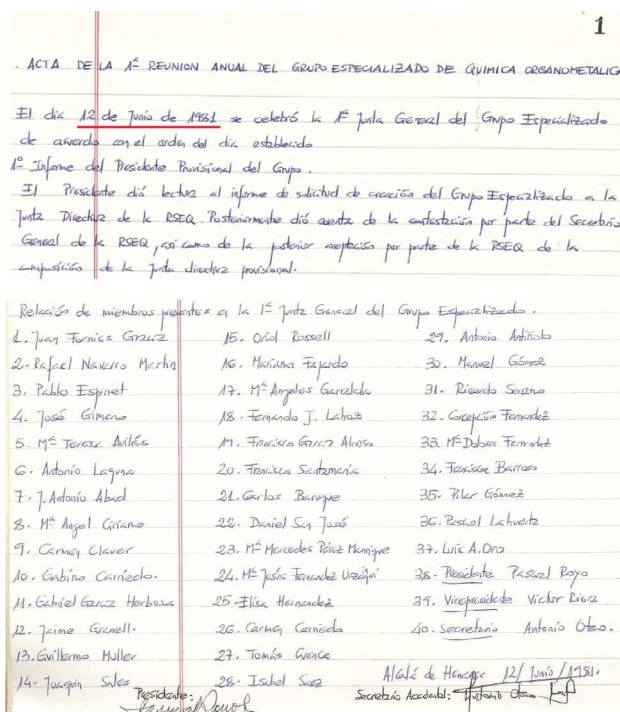 1
. ACTA DE LA 1ª REUNION ANUAL DEL GRUPO ESPECIALIZADO DE QUIMICA ORGANOMETALICA
El dia 12 de Junio de 1981 se celebró la 1ª Junta General del Grupo Especializado
de acuerdo con el orden del dia establecido
1º Informe del Presidente Provisional del Grupo.
El Presidente dió lectura al informe de solicitud de creación del Grupo Especializado a la
Junta Directiva de la RSEQ. Posteriormente dió cuenta de la contestación por parte del Secretario
General de la RSEQ, asi como de la posterior aceptación por parte de la RSEQ de la
composición de la Junta directiva provisional.
Relación de miembros presentes a la 1ª Junta General del Grupo Especializado.
1. Juan Fornies Gracia
2. Rafael Navarro Martin
3. Pablo Espinet
4. José Gimeno
5. Mª Teresa Avilés
6. Antonio Laguna
7. J. Antonio Abad
8. Mª Angel Ciriano
9. Carmen Claver
10. Gabino Carriedo.
11. Gabriel Garcia Herbosa
12. Jaime Granell.
13. Guillermo Muller
14. Joaquin Sales
15. Oriol Rossell
16. Mariano Fajardo
17. Mª Angeles Garralda
18. Fernando J. Lahoz
19. Francisco Garcia Alonso
20. Francisco Santamaria
21. Carlos Barrupe
22. Daniel San José
23. Mª Mercedes Pérez Manrique
24. Mª Jesús Fernandez
25. Elisa Hernandez
26. Carmen Carriedo
27. Tomás Cuenca
28. Isabel Saez
29. Antonio Antiñolo
30. Manuel Gómez
31. Ricardo Serrano
32. Concepción Fernandez
33. Mª Dolores Fernandez
34. Francisco Barroso
35. Pilar Gómez
36. Pascual Lahuerta
37. Luis A. Oro
38. Presidente Pascual Royo
39. Vicepresidente Victor Riera
40. Secretario Antonio Otero.
Alcalá de Henares 12/Junio/1981.
Presidente:
Secretario Accidental: Antonio Otero